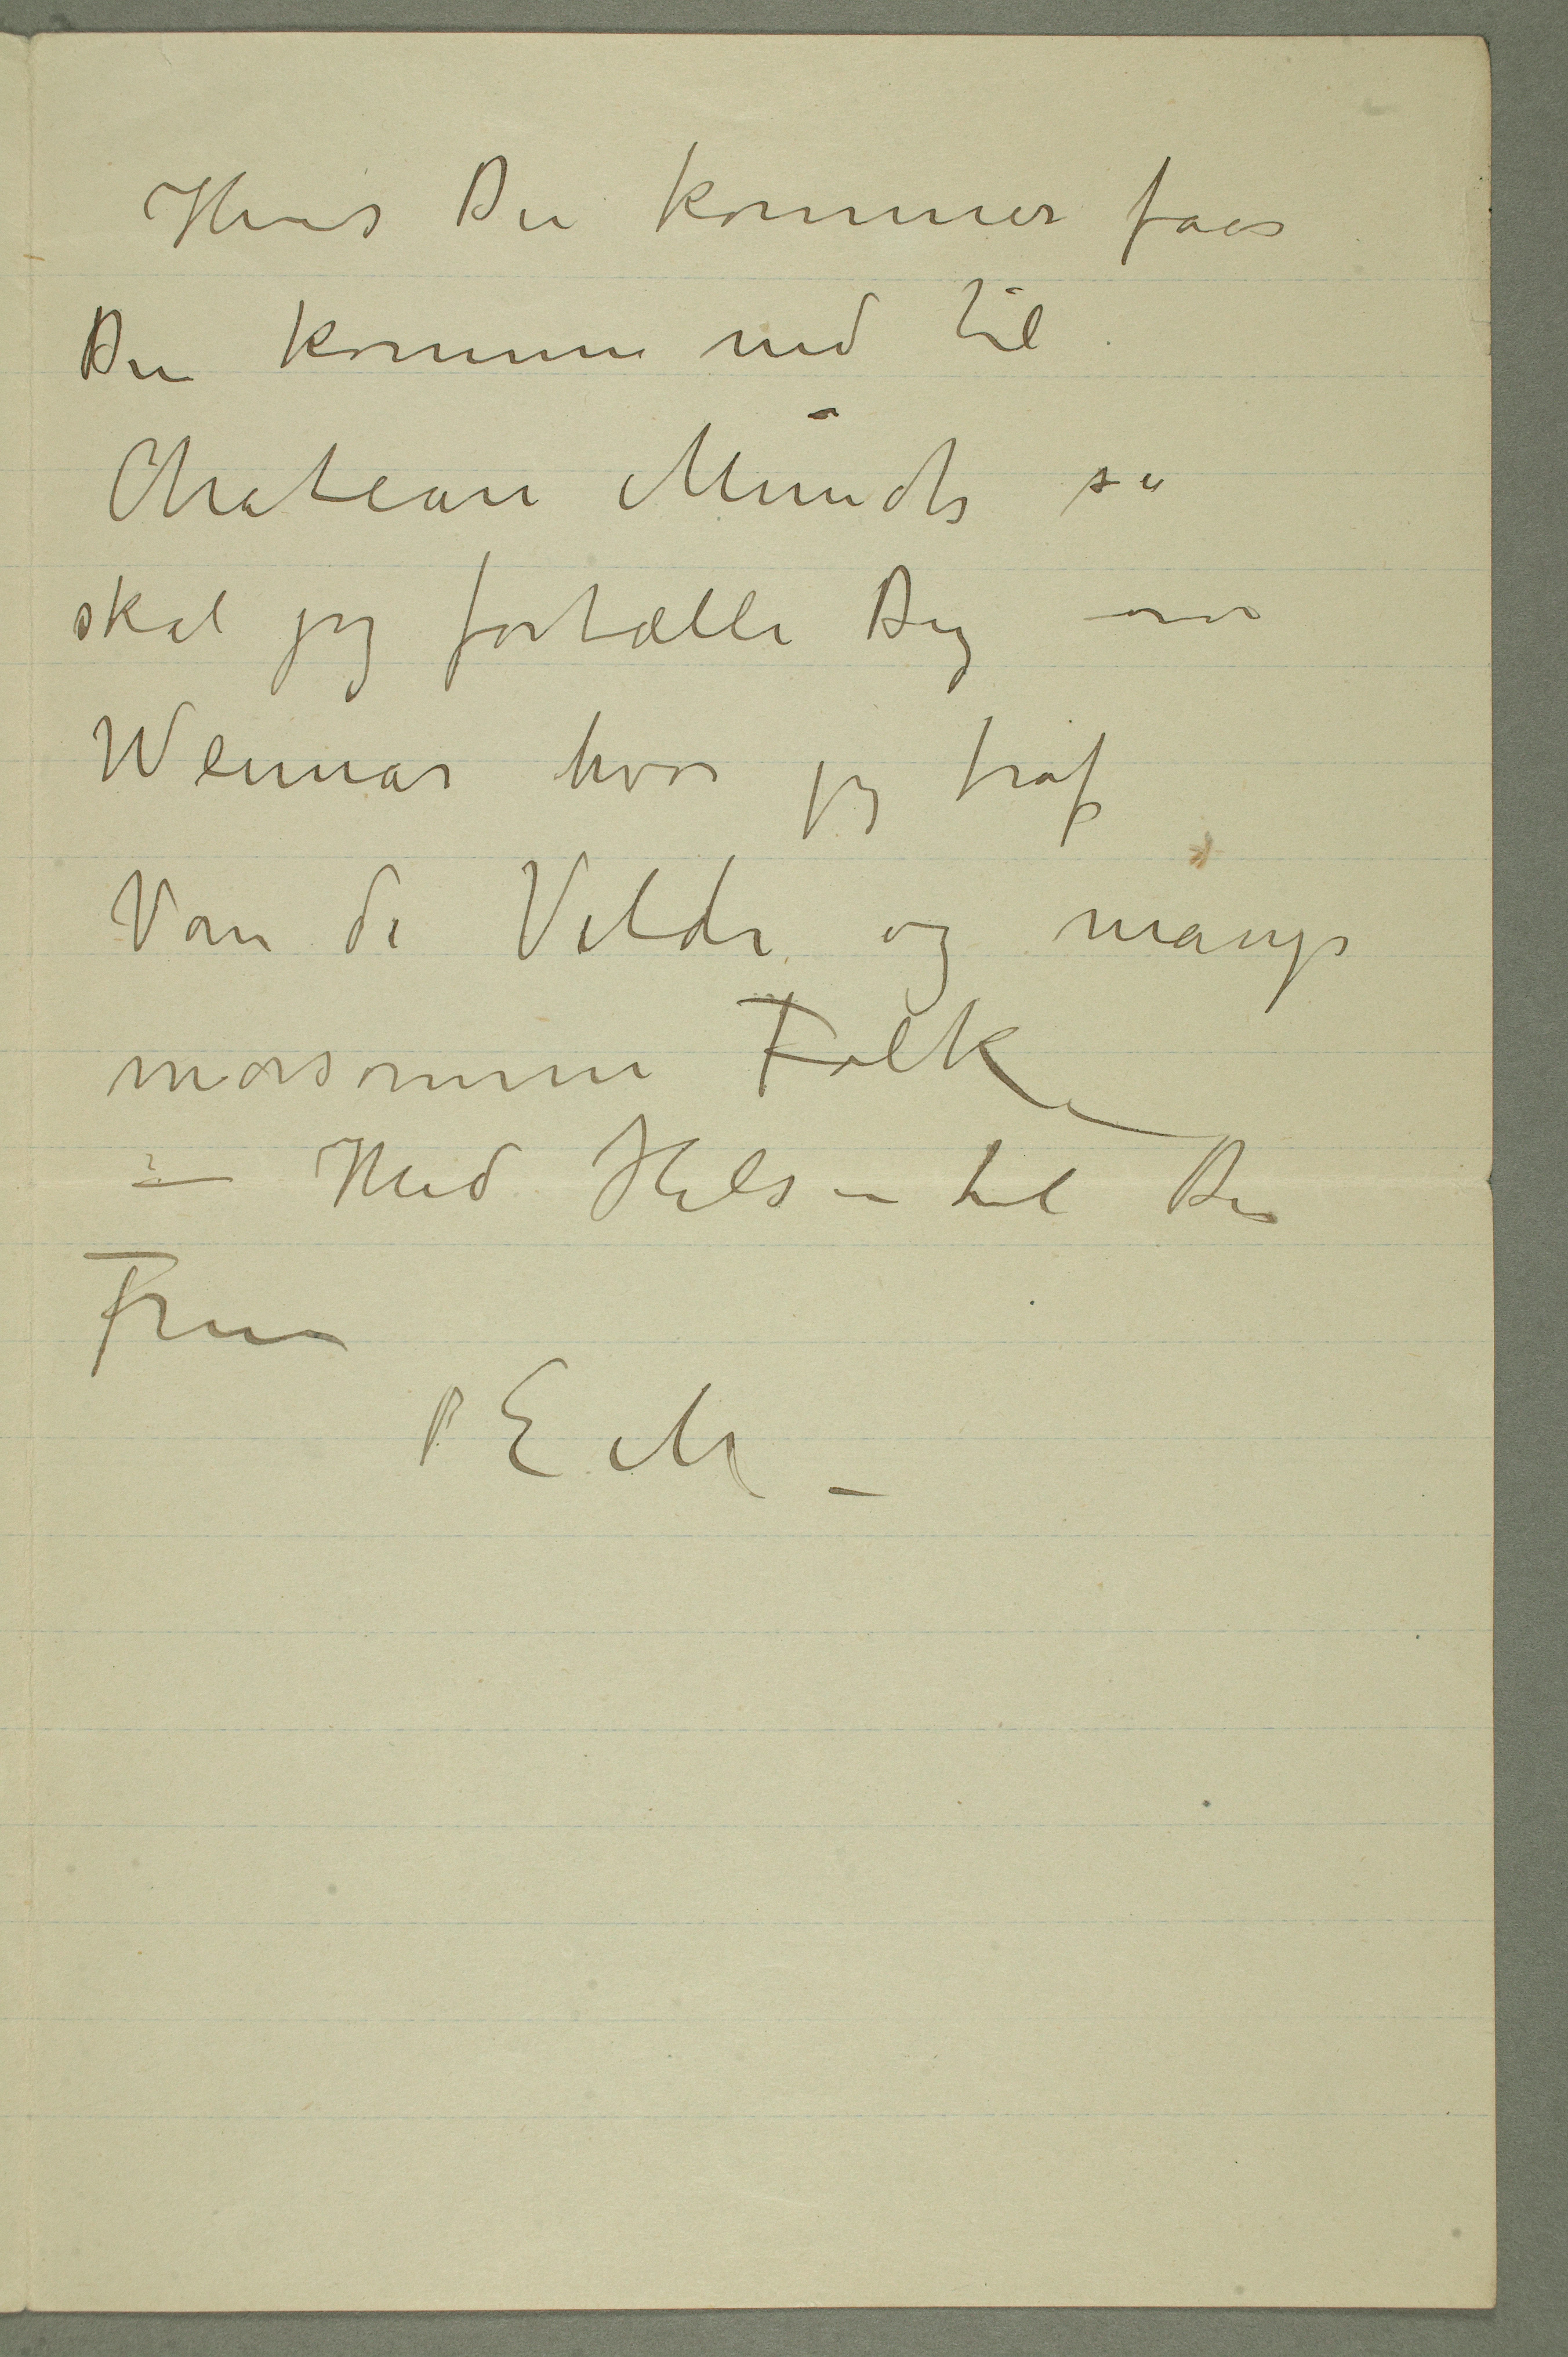 Hvis Du kommer faar
Du komme ned til
Chateau Munch så
skal jeg fortælle Dig om
Weimar hvor jeg traf
Van de Velde og mange
morsomme Folk
– Med Hils – til Din
Frue
E M –